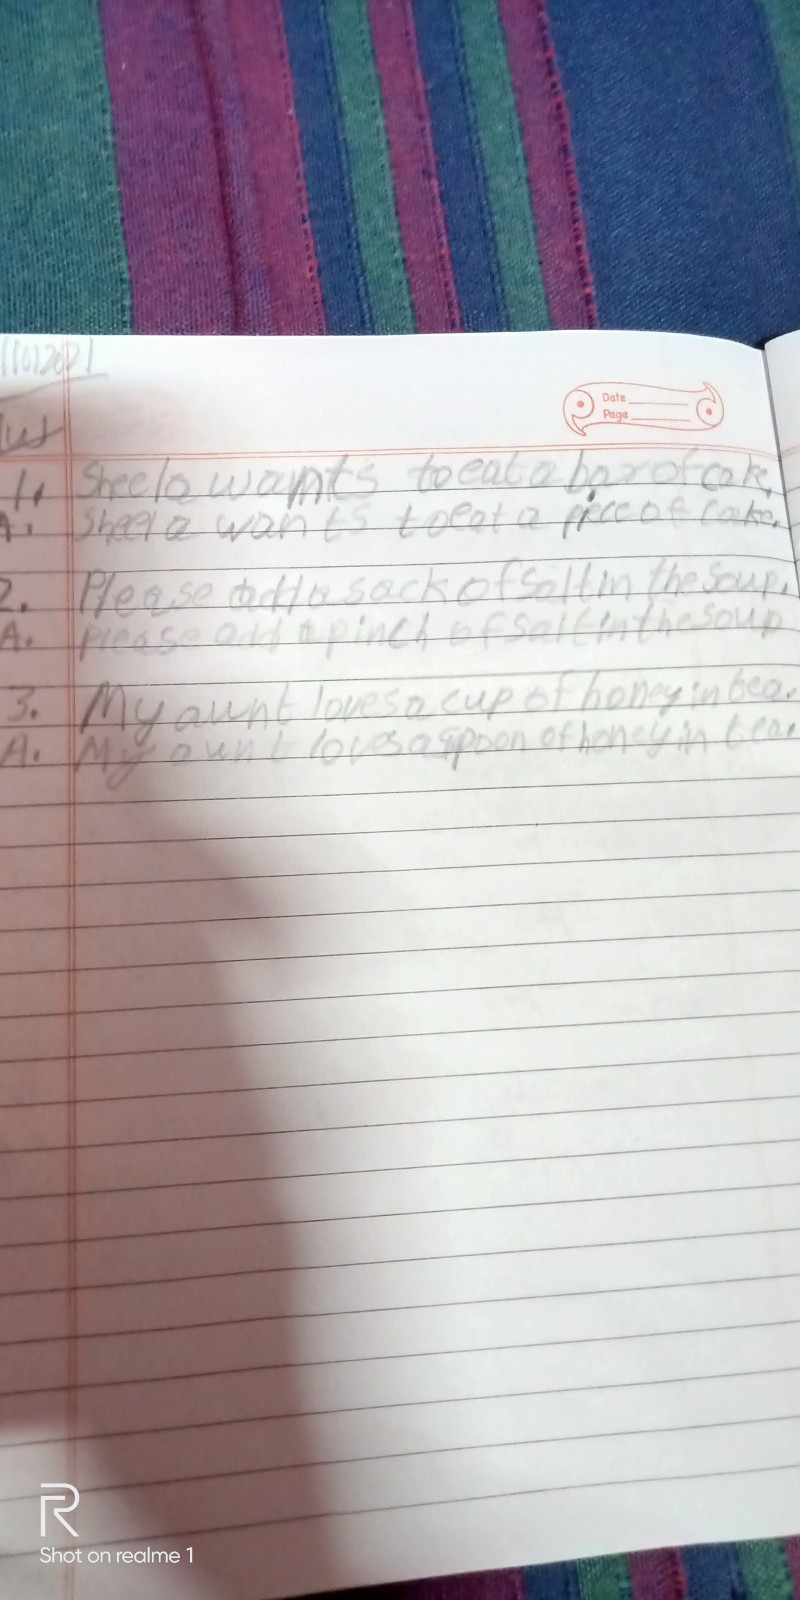 Date
Page
1. Sheela wants to eat a bar of cake.
A. Sheela wants to eat a piece of cake.
2. Please add a sack of salt in the soup.
A. please add a pinch of salt in the soup
3. My aunt loves a cup of honey in tea.
A. My aunt loves a spoon of honey in tea.
R
Shot on realme 1